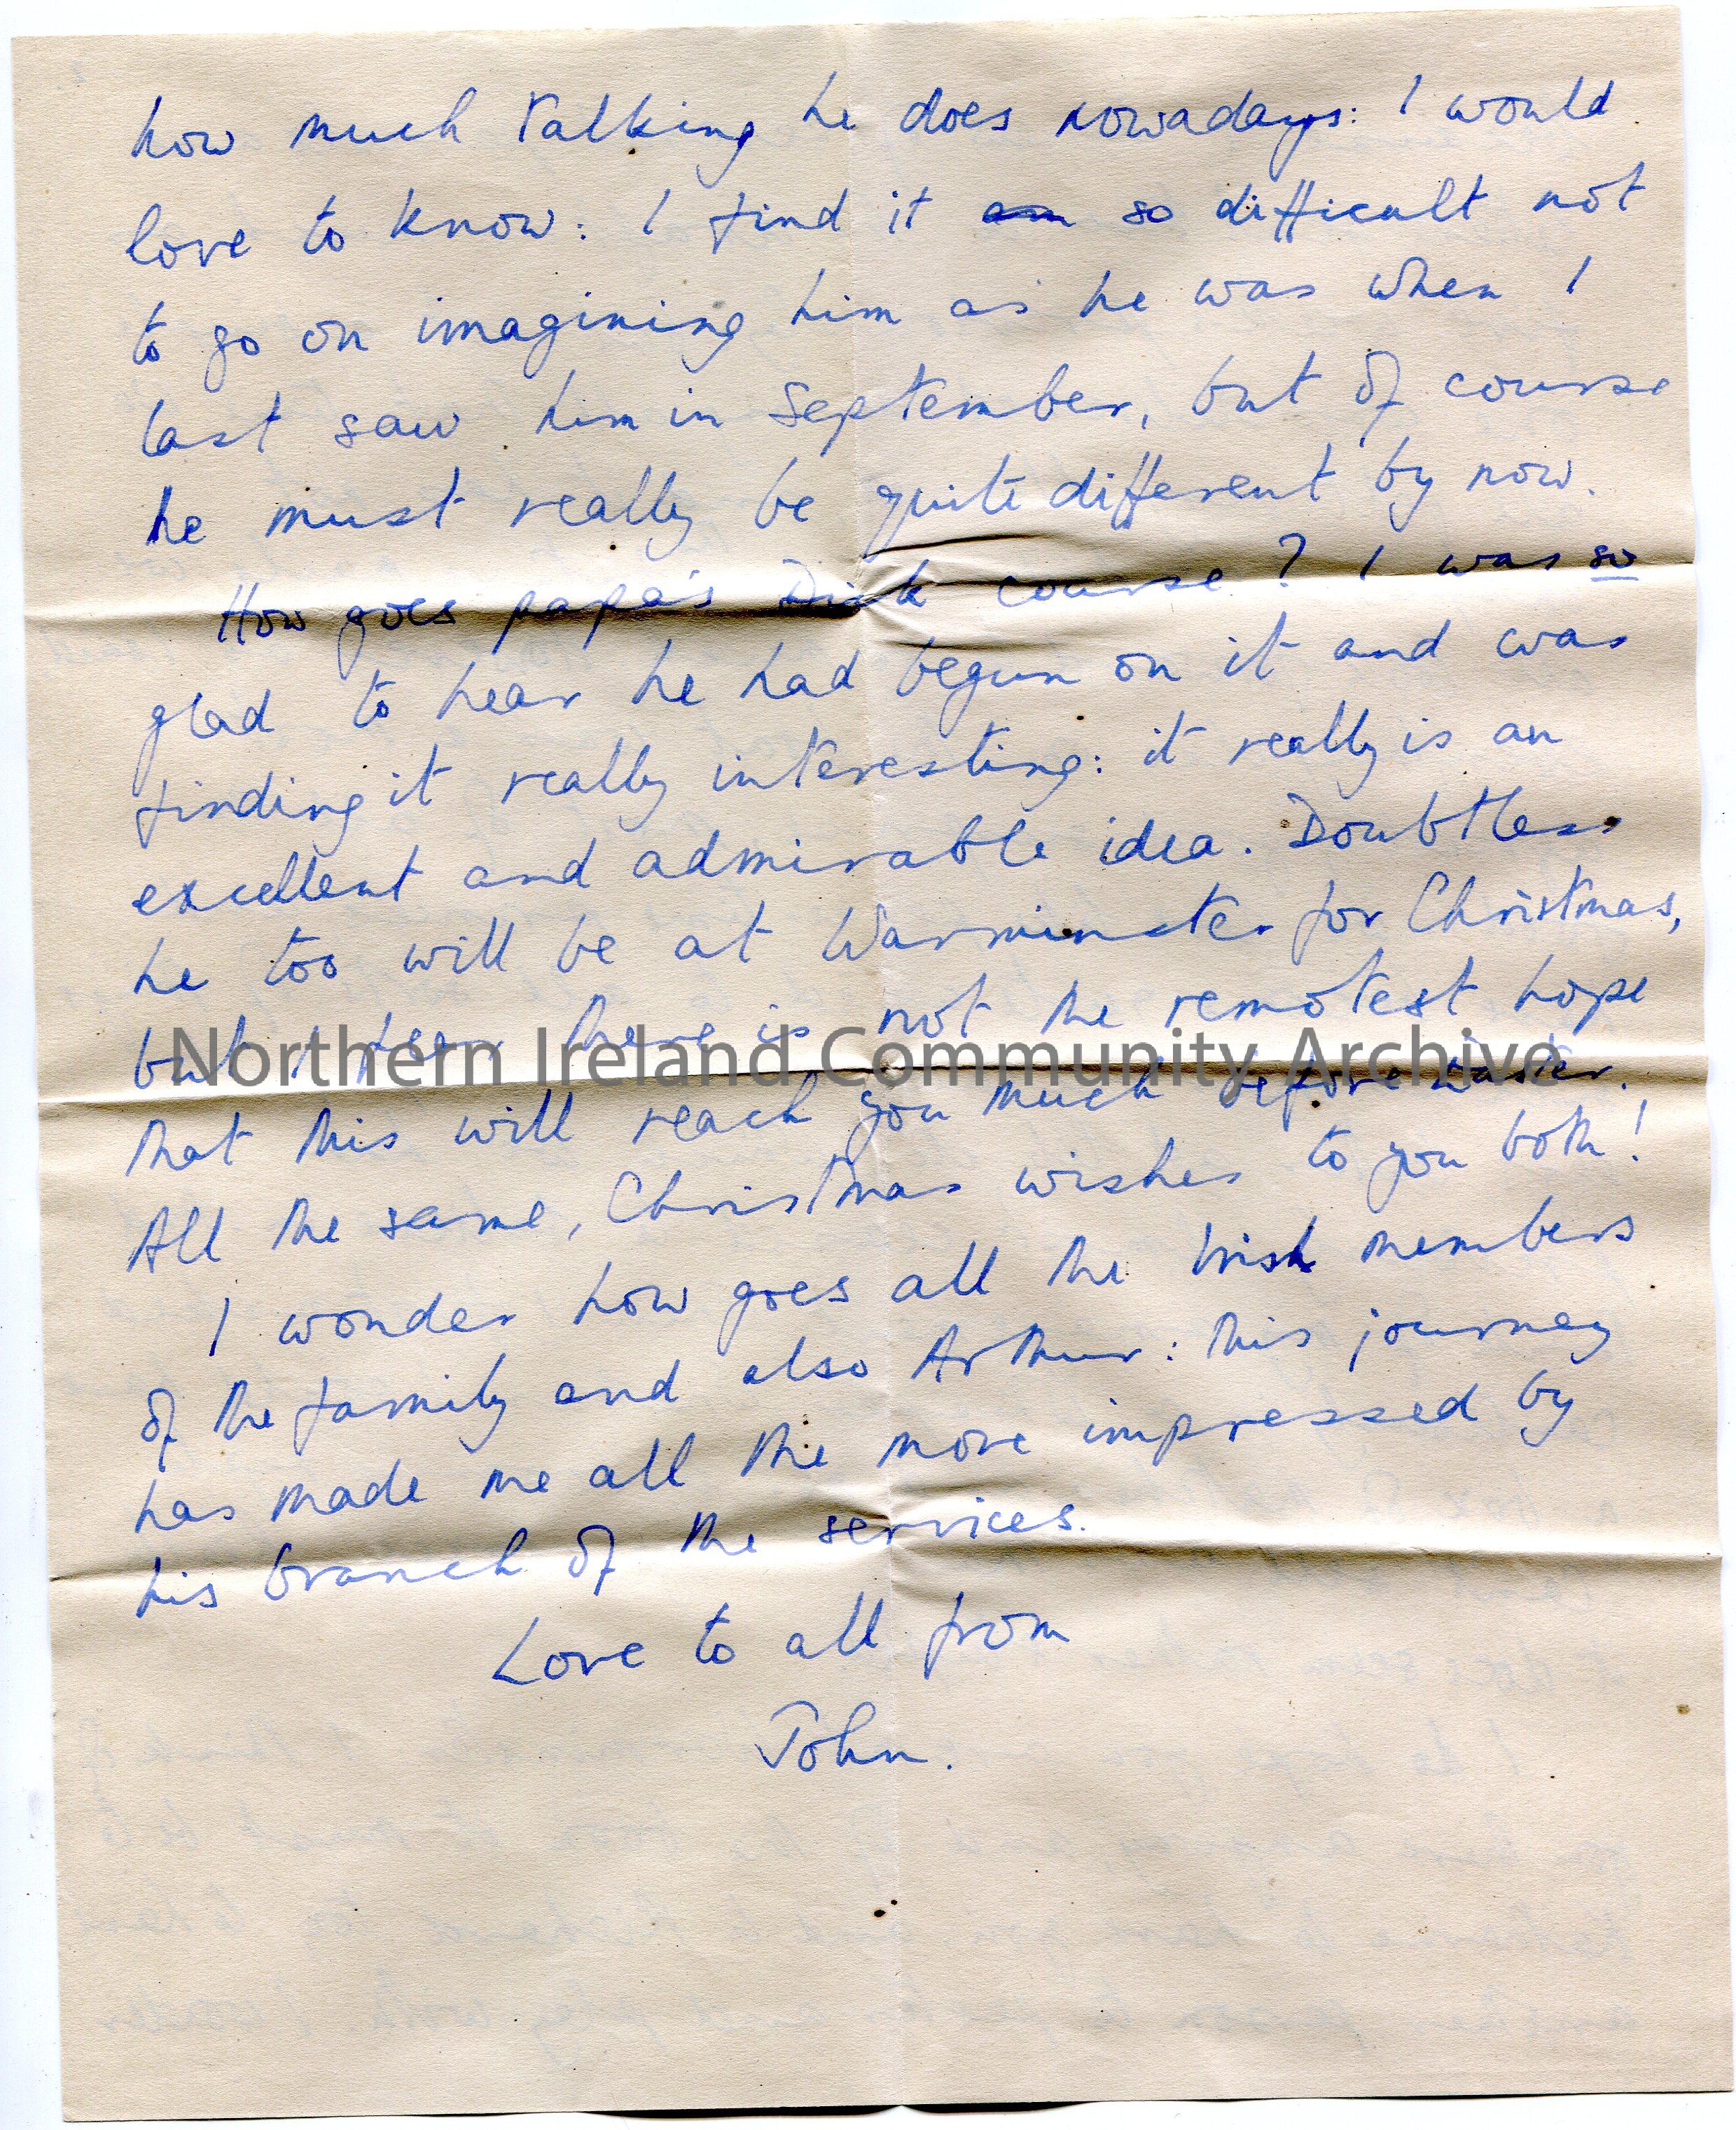 how much talking he does nowadays: I would
love to know: I find it so difficult not
to go on imagining him as he was when I
last saw him in September, but of course
he must really be quite different by now.
How goes papa's course? I was so
glad to hear he had begun on it and was
finding it really interesting: it really is an
excellent and admirable idea. Doubtless
he too will be at Warminster for Christmas,
but I fear there is not the remotest hope
Northern Ireland Community Archive
that this will reach you much before Easter.
All the same, Christmas wishes to you both!
I wonder how goes all the Irish members
of the family and also Arthur: this journey
has made me all the more impressed by
his branch of the services.
Love to all from
John.